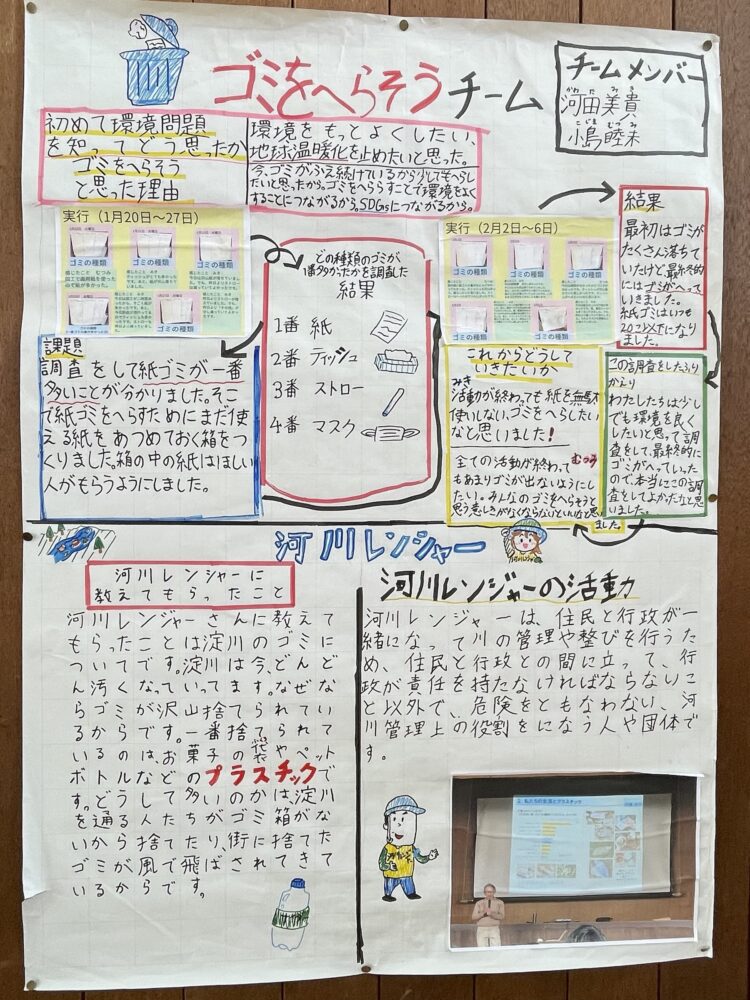 ゴミをへらそうチーム
チームメンバー
かわ た み き
河田美貴
こじま むつみ
小島睦未
初めて環境問題
を知ってどう思ったか
ゴミをへらそう
と思った理由
環境をもっとよくしたい、
地球温暖化を止めたいと思った。
今、ゴミがふえ続けているから少しでもへらし
たいと思ったから。ゴミをへらすことで環境をよく
することにつながるから。SDGsにつながるから。
実行(1月20日~27日)
ゴミの種類
ゴミの種類
ゴミの種類
ゴミの種類
ゴミの種類
どの種類のゴミが
1番多かったかを調査した
結果
1番 紙
2番 ティッシュ
3番 ストロー
4番 マスク
課題
調査をして紙ゴミが一番
多いことが分かりました。そこ
で紙ゴミをへらすためにまだ使
える紙をあつめておく箱をつ
くりました。箱の中の紙はほしい
人がもらうようにしました。
実行(2月2日~6日)
ゴミの種類
ゴミの種類
ゴミの種類
ゴミの種類
ゴミの種類
結果
最初はゴミが
たくさん落ちて
いたけど、最終的
にはゴミがへって
いきました。
紙ゴミはいつも
20こ以下になり
ました。
これからどうして
いきたいか
みき
活動が終わっても紙を無駄
使いしない、ゴミをへらしたい
なと思いました!
全ての活動が終わって むつみ
もあまりゴミが出ないようにし
たい。みんなのゴミをへらそうと
思う意しきがなくならないといいなと思い
ました。
この調査をしたふり
かえり
わたしたちは少し
でも環境を良く
したいと思って調
査をして、最終的に
ゴミがへっていった
ので、本当にこの調
査をしてよかったなと思
いました。
河川レンジャー
河川レンジャーに
教えてもらったこと
河川レンジャーさんに教えて
もらったことは淀川のゴミに
ついてです。淀川は今、どんど
ん汚くなっていってます。なぜな
らゴミが沢山捨てられてい
るからです。一番捨てられて
いるのは、お菓子の袋やペット
ボトルなどのプラスチックで
す。どうして多いのかは、淀川
を通る人たちがゴミ箱がな
いから捨てたり、街に捨てた
ゴミが風で飛ばされてきて
いるからです。
河川レンジャーの活動
河川レンジャーは、住民と行政が一
緒になって川の管理や整びを行うた
め、住民と行政との間に立って、行
政が責任を持たなければならないこ
と以外で、危険をともなわない、河
川管理上の役割をになう人や団体で
す。
2. 私たちの生活とプラスチック